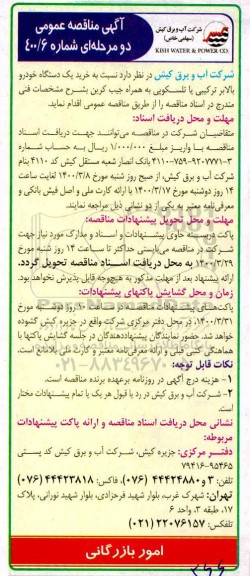 آگهی مناقصه عمومی
دو مرحله‌ای شماره ۴۰۰/۶
شرکت آب و برق کیش
(سهامی خاص)
KISH WATER & POWER CO.
شرکت آب و برق کیش در نظر دارد نسبت به خرید یک دستگاه خودرو
بالابر ترکیبی یا تلسکوپی به همراه جیب کرین بشرح مشخصات فنی
مندرج در اسناد مناقصه را از طریق مناقصه عمومی اقدام نماید.
مهلت و محل دریافت اسناد:
متقاضیان شرکت در مناقصه می‌توانند جهت دریافت اسناد
مناقصه با واریز مبلغ ۱/۰۰۰/۰۰۰ ریال به حساب شماره
۴۱۱۰-۷۵۹-۹۲۰۷۷۷۱-۳ بانک انصار شعبه مستقل کیش کد ۴۱۱۰ بنام
شرکت آب و برق کیش، از صبح روز شنبه مورخ ۱۴۰۰/۳/۸ لغایت ساعت
۱۴ روز دوشنبه مورخ ۱۴۰۰/۳/۱۷ با ارائه کارت ملی و اصل فیش بانکی و
معرفی‌نامه معتبر به یکی از دو نشانی ذیل مراجعه نمایند.
مهلت و محل تحویل پیشنهادات مناقصه:
پاکت دربسته حاوی پیشنهادات و اسناد و مدارک مورد نیاز جهت
شرکت در مناقصه می‌بایستی حداکثر تا ساعت ۱۴ روز شنبه مورخ
۱۴۰۰/۳/۲۹ به محل دریافت اسناد مناقصه تحویل گردد.
ارائه پیشنهاد بعد از مهلت مذکور به هیچ‌وجه قابل پذیرش نخواهد بود.
زمان و محل گشایش پاکتهای پیشنهادات:
پاکت‌های پیشنهادات مناقصه در ساعت ۱۰ روز دوشنبه مورخ
۱۴۰۰/۳/۳۱، در محل دفتر مرکزی شرکت واقع در جزیره کیش گشوده
خواهد شد. حضور نمایندگان پیشنهاددهندگان در جلسه گشایش پاکتها با
هماهنگی کتبی قبلی و ارائه معرفی‌نامه معتبر و کارت ملی بلامانع است.
نکات قابل توجه:
۱- هزینه درج آگهی در روزنامه برعهده برنده مناقصه است.
۲- شرکت آب و برق کیش در رد یا قبول هر یک یا تمام پیشنهادات مختار
است.
نشانی محل دریافت اسناد مناقصه و ارائه پاکت پیشنهادات
مربوطه:
دفتر مرکزی: جزیره کیش، شرکت آب و برق کیش کد پستی
۷۹۴۱۶-۹۵۴۶۵
تلفن: ۲ و ۴۴۴۲۴۸۸۰ (۰۷۶)، فاکس: ۴۴۴۲۳۸۱۸ (۰۷۶)
تهران: شهرک غرب، بلوار شهید فرحزادی، بلوار شهید نورانی، پلاک
۱۷، طبقه ۳، واحد ۶
تلفکس: ۲۲۰۷۶۱۵۷ (۰۲۱)
امور بازرگانی